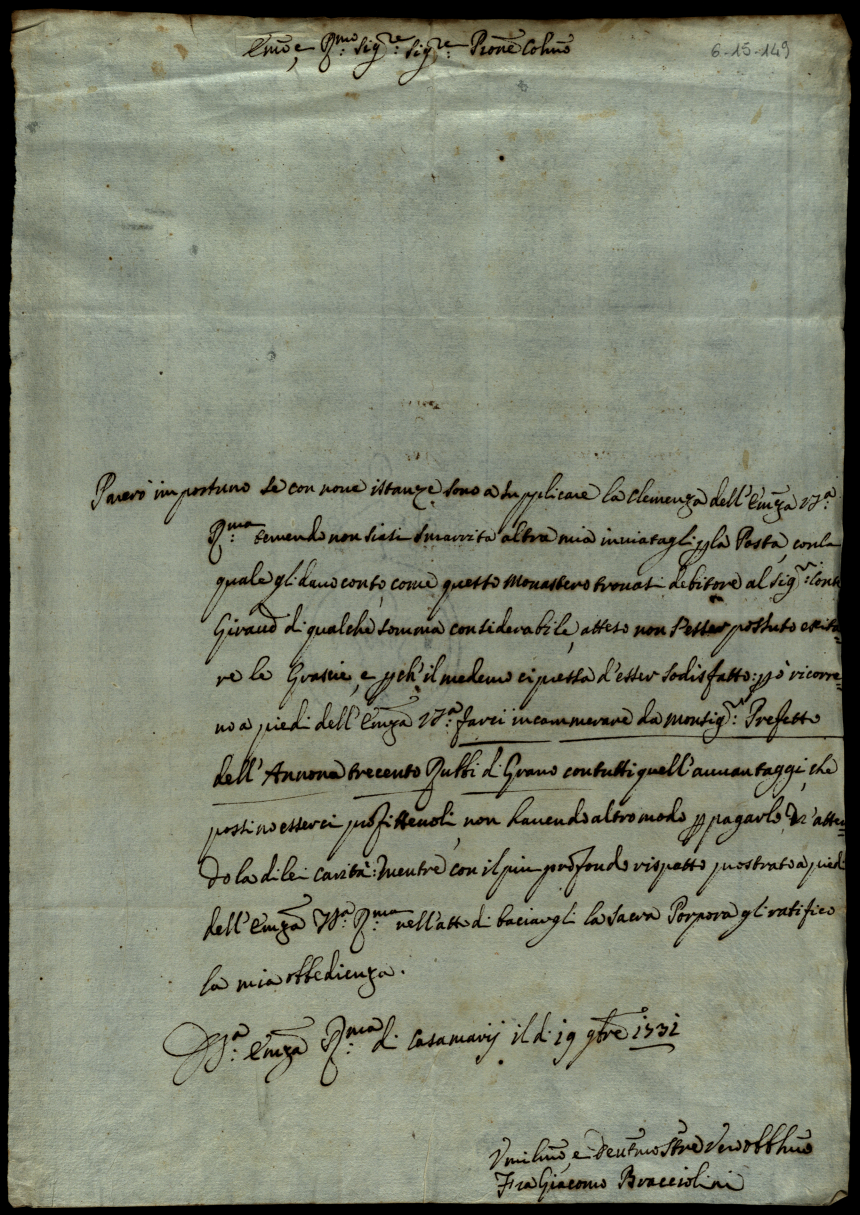 Emo, e Rmo Sigre: Sigre: Prone Colmo
6-15-149
Parerò importuno se con nove istanze sono a supplicare la Clemenza dell'Emza Vra:
Rma: temendo non siasi smarrita altra mia inviatagli p la Posta, con la
quale gli davo conto, come questo Monastero trovasi debitore al Sigr: Conte
Giraud di qualche somma considerabile, atteso non esser possuto esita=
re le Grascie, e pch'il medemo ci pressa d'esser sodisfatto: pò ricorre=
no a piedi dell'Emza Vra: farci incammerare da Monsigr: Prefetto
dell'Annona trecento Rubbi di Grano con tutti quell'avvantaggi, che
possino esserci profittevoli, non havendo altro modo p pagarlo, N'atten=
do la di lei carità: Mentre con il piu profondo rispetto prostrato a piedi
dell'Emza Vra: Rma: nell'atto di baciargli la Sacra Porpora gli ratifico
la mia obbedienza.
Vra: Emza Rma: di Casamarij il di 19 9bre 1731
Umilmo, e Devtmo Srre Vero Obblmo
Fra Giacomo Bracciolini